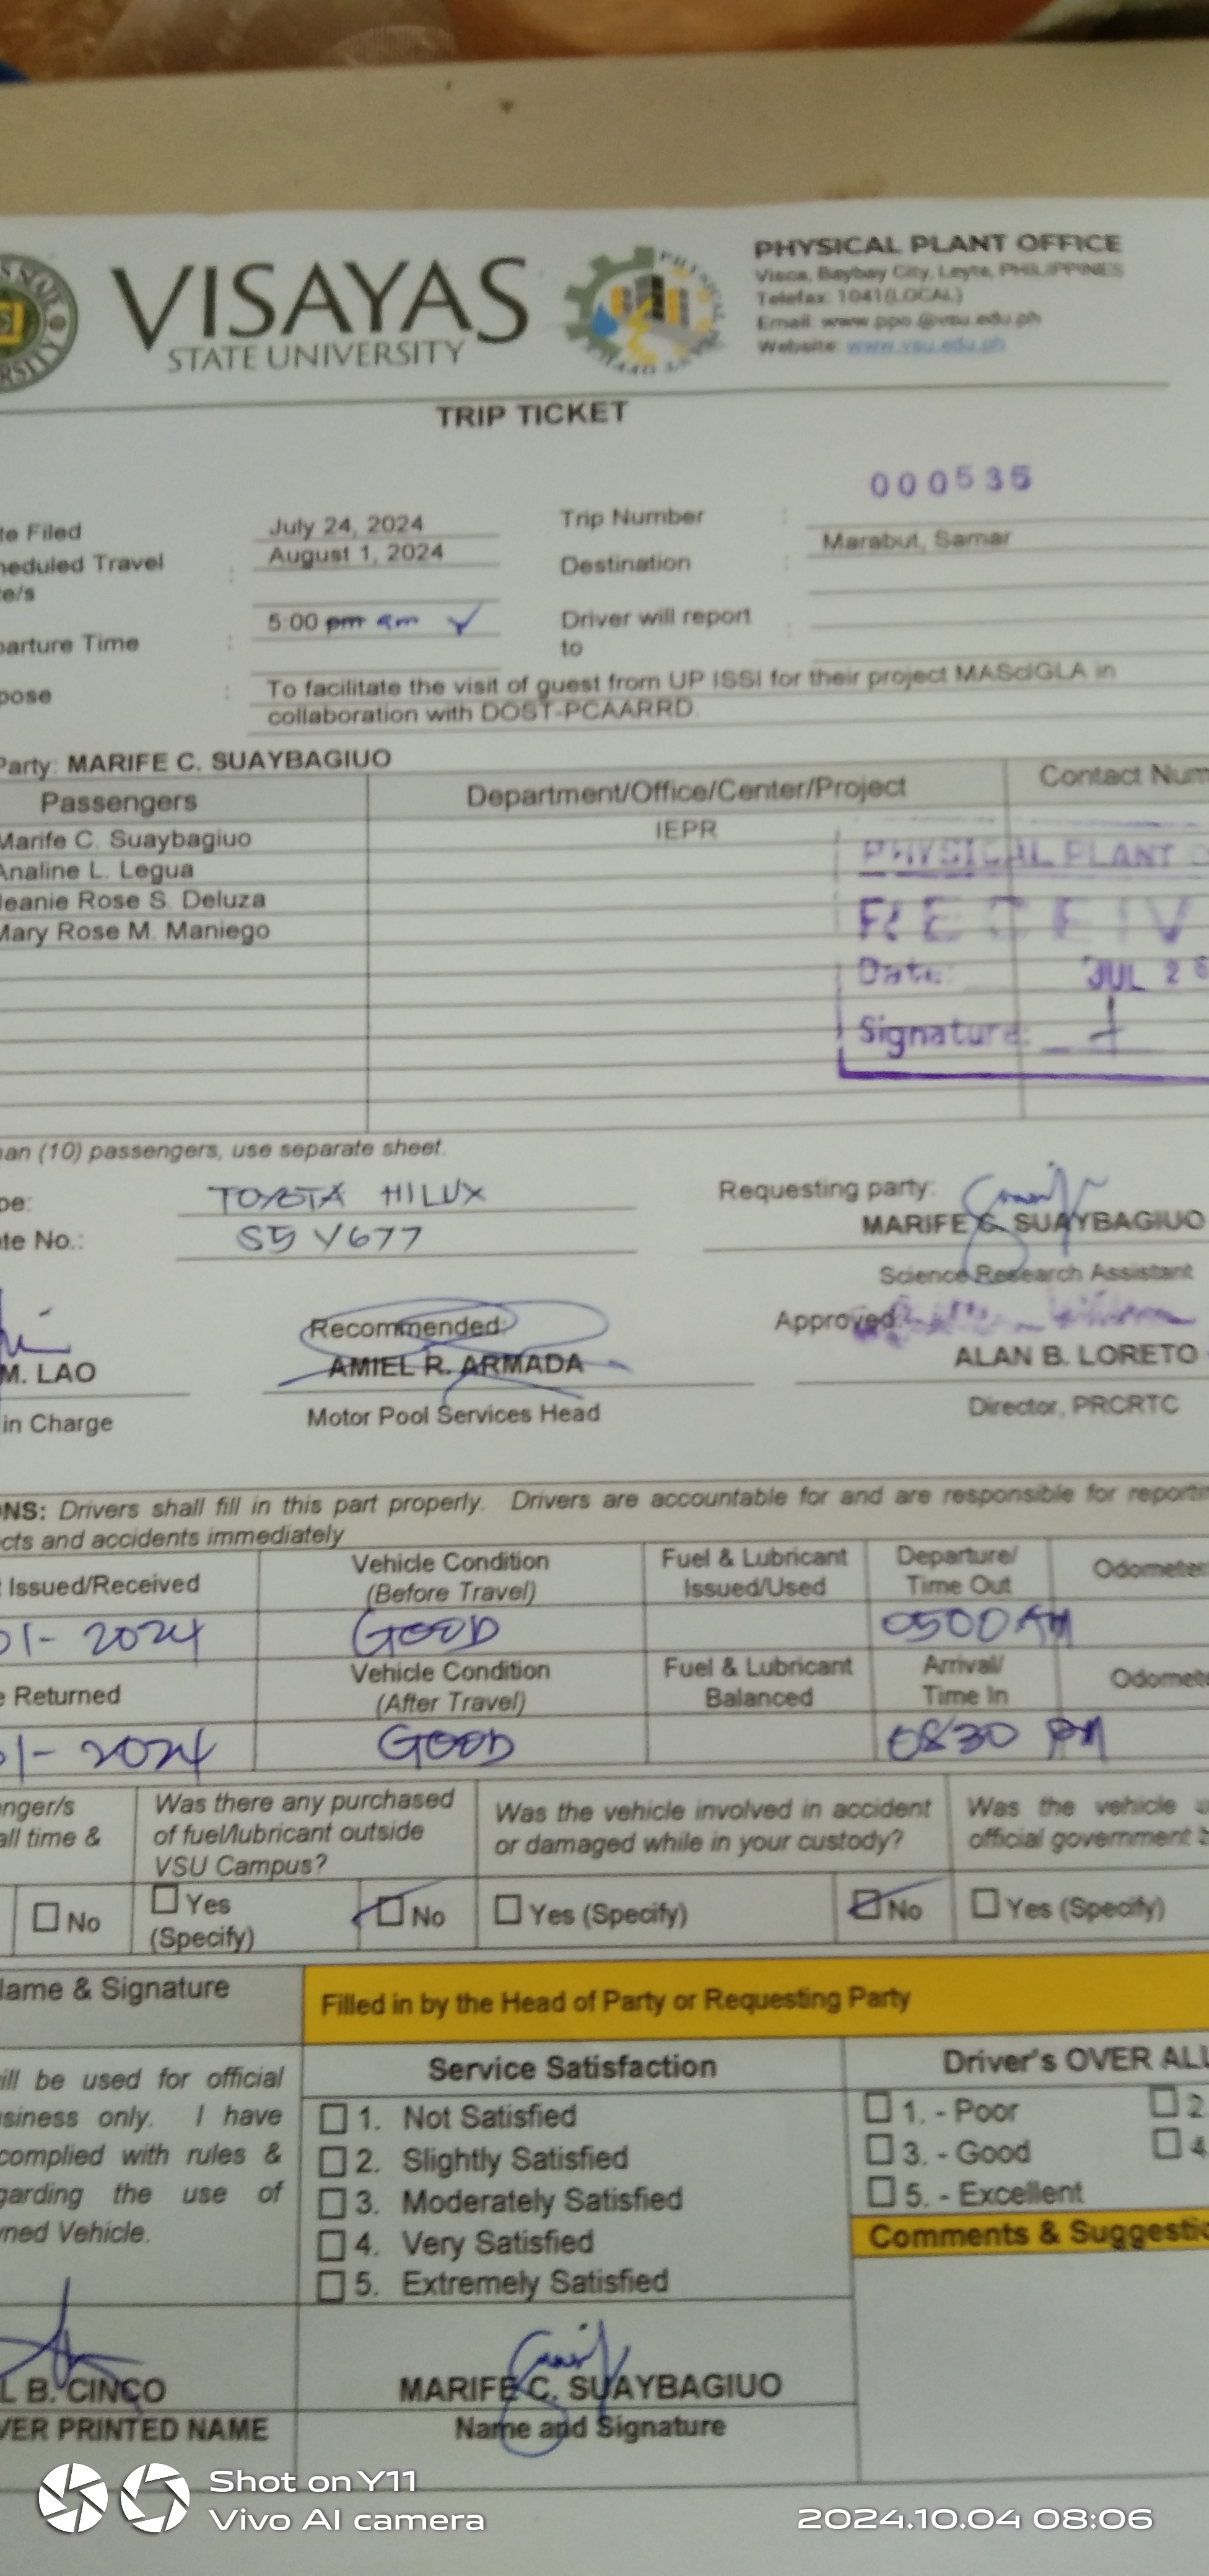 VISAYAS
STATE UNIVERSITY
PHYSICAL PLANT OFFICE
Visca, Baybay City, Leyte, PHILIPPINES
Telefax: 1041(LOCAL)
Email: www.ppo.@vsu.edu.ph
Website: www.vsu.edu.ph
TRIP TICKET
000535
te Filed July 24, 2024 Trip Number :
heduled Travel : August 1, 2024 Destination : Marabut, Samar
te/s
parture Time : 5:00 pm am Driver will report :
to
pose : To facilitate the visit of guest from UP ISSI for their project MASciGLA in
collaboration with DOST-PCAARRD.
Party: MARIFE C. SUAYBAGIUO
Passengers Department/Office/Center/Project Contact Num
Marife C. Suaybagiuo IEPR
Analine L. Legua
Jeanie Rose S. Deluza
Mary Rose M. Maniego
PHYSICAL PLANT O
RECEIV
Date: JUL 26
Signature:
an (10) passengers, use separate sheet.
pe: TOYOTA HILUX
te No.: S5 Y677
Requesting party:
MARIFE C. SUAYBAGIUO
Science Research Assistant
Recommended:
Approved:
M. LAO AMIEL R. ARMADA ALAN B. LORETO
in Charge Motor Pool Services Head Director, PRCRTC
ONS: Drivers shall fill in this part properly. Drivers are accountable for and are responsible for reportin
cts and accidents immediately
Issued/Received Vehicle Condition (Before Travel) Fuel & Lubricant Issued/Used Departure/ Time Out Odometer
01-2024 GOOD 0500 AM
e Returned Vehicle Condition (After Travel) Fuel & Lubricant Balanced Arrival/ Time In Odomete
01-2024 GOOD 0830 PM
nger/s
all time &
Was there any purchased
of fuel/lubricant outside
VSU Campus?
Was the vehicle involved in accident
or damaged while in your custody?
Was the vehicle u
official government b
No Yes (Specify) No Yes (Specify) No Yes (Specify)
Name & Signature Filled in by the Head of Party or Requesting Party
ill be used for official
siness only. I have
complied with rules &
garding the use of
ned Vehicle.
Service Satisfaction
1. Not Satisfied
2. Slightly Satisfied
3. Moderately Satisfied
4. Very Satisfied
5. Extremely Satisfied
Driver's OVER ALL
1. - Poor 2
3. - Good 4
5. - Excellent
Comments & Suggestio
L B. CINCO MARIFE C. SUAYBAGIUO
VER PRINTED NAME Name and Signature
Shot on Y11
Vivo AI camera
2024.10.04 08:06